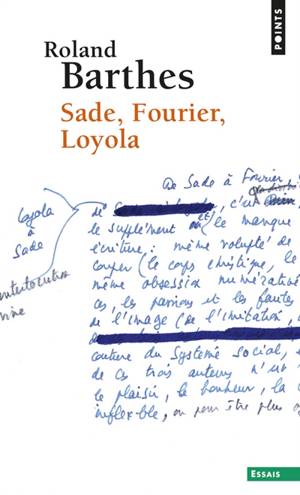 POINTS
Roland
Barthes
Sade, Fourier,
Loyola
De Sade à Fourier
Loyola
à
Sade
de
le supplément et le manque
écriture : même volupté de
couper (le corps christique, le
même obsession numérative
ces, les passions et les fautes
de l'image (de l'imitation, d
couture du système social,
de ces trois auteurs n'
le plaisir, le bonheur, la
inflexible, ou pour être plus
ESSAIS